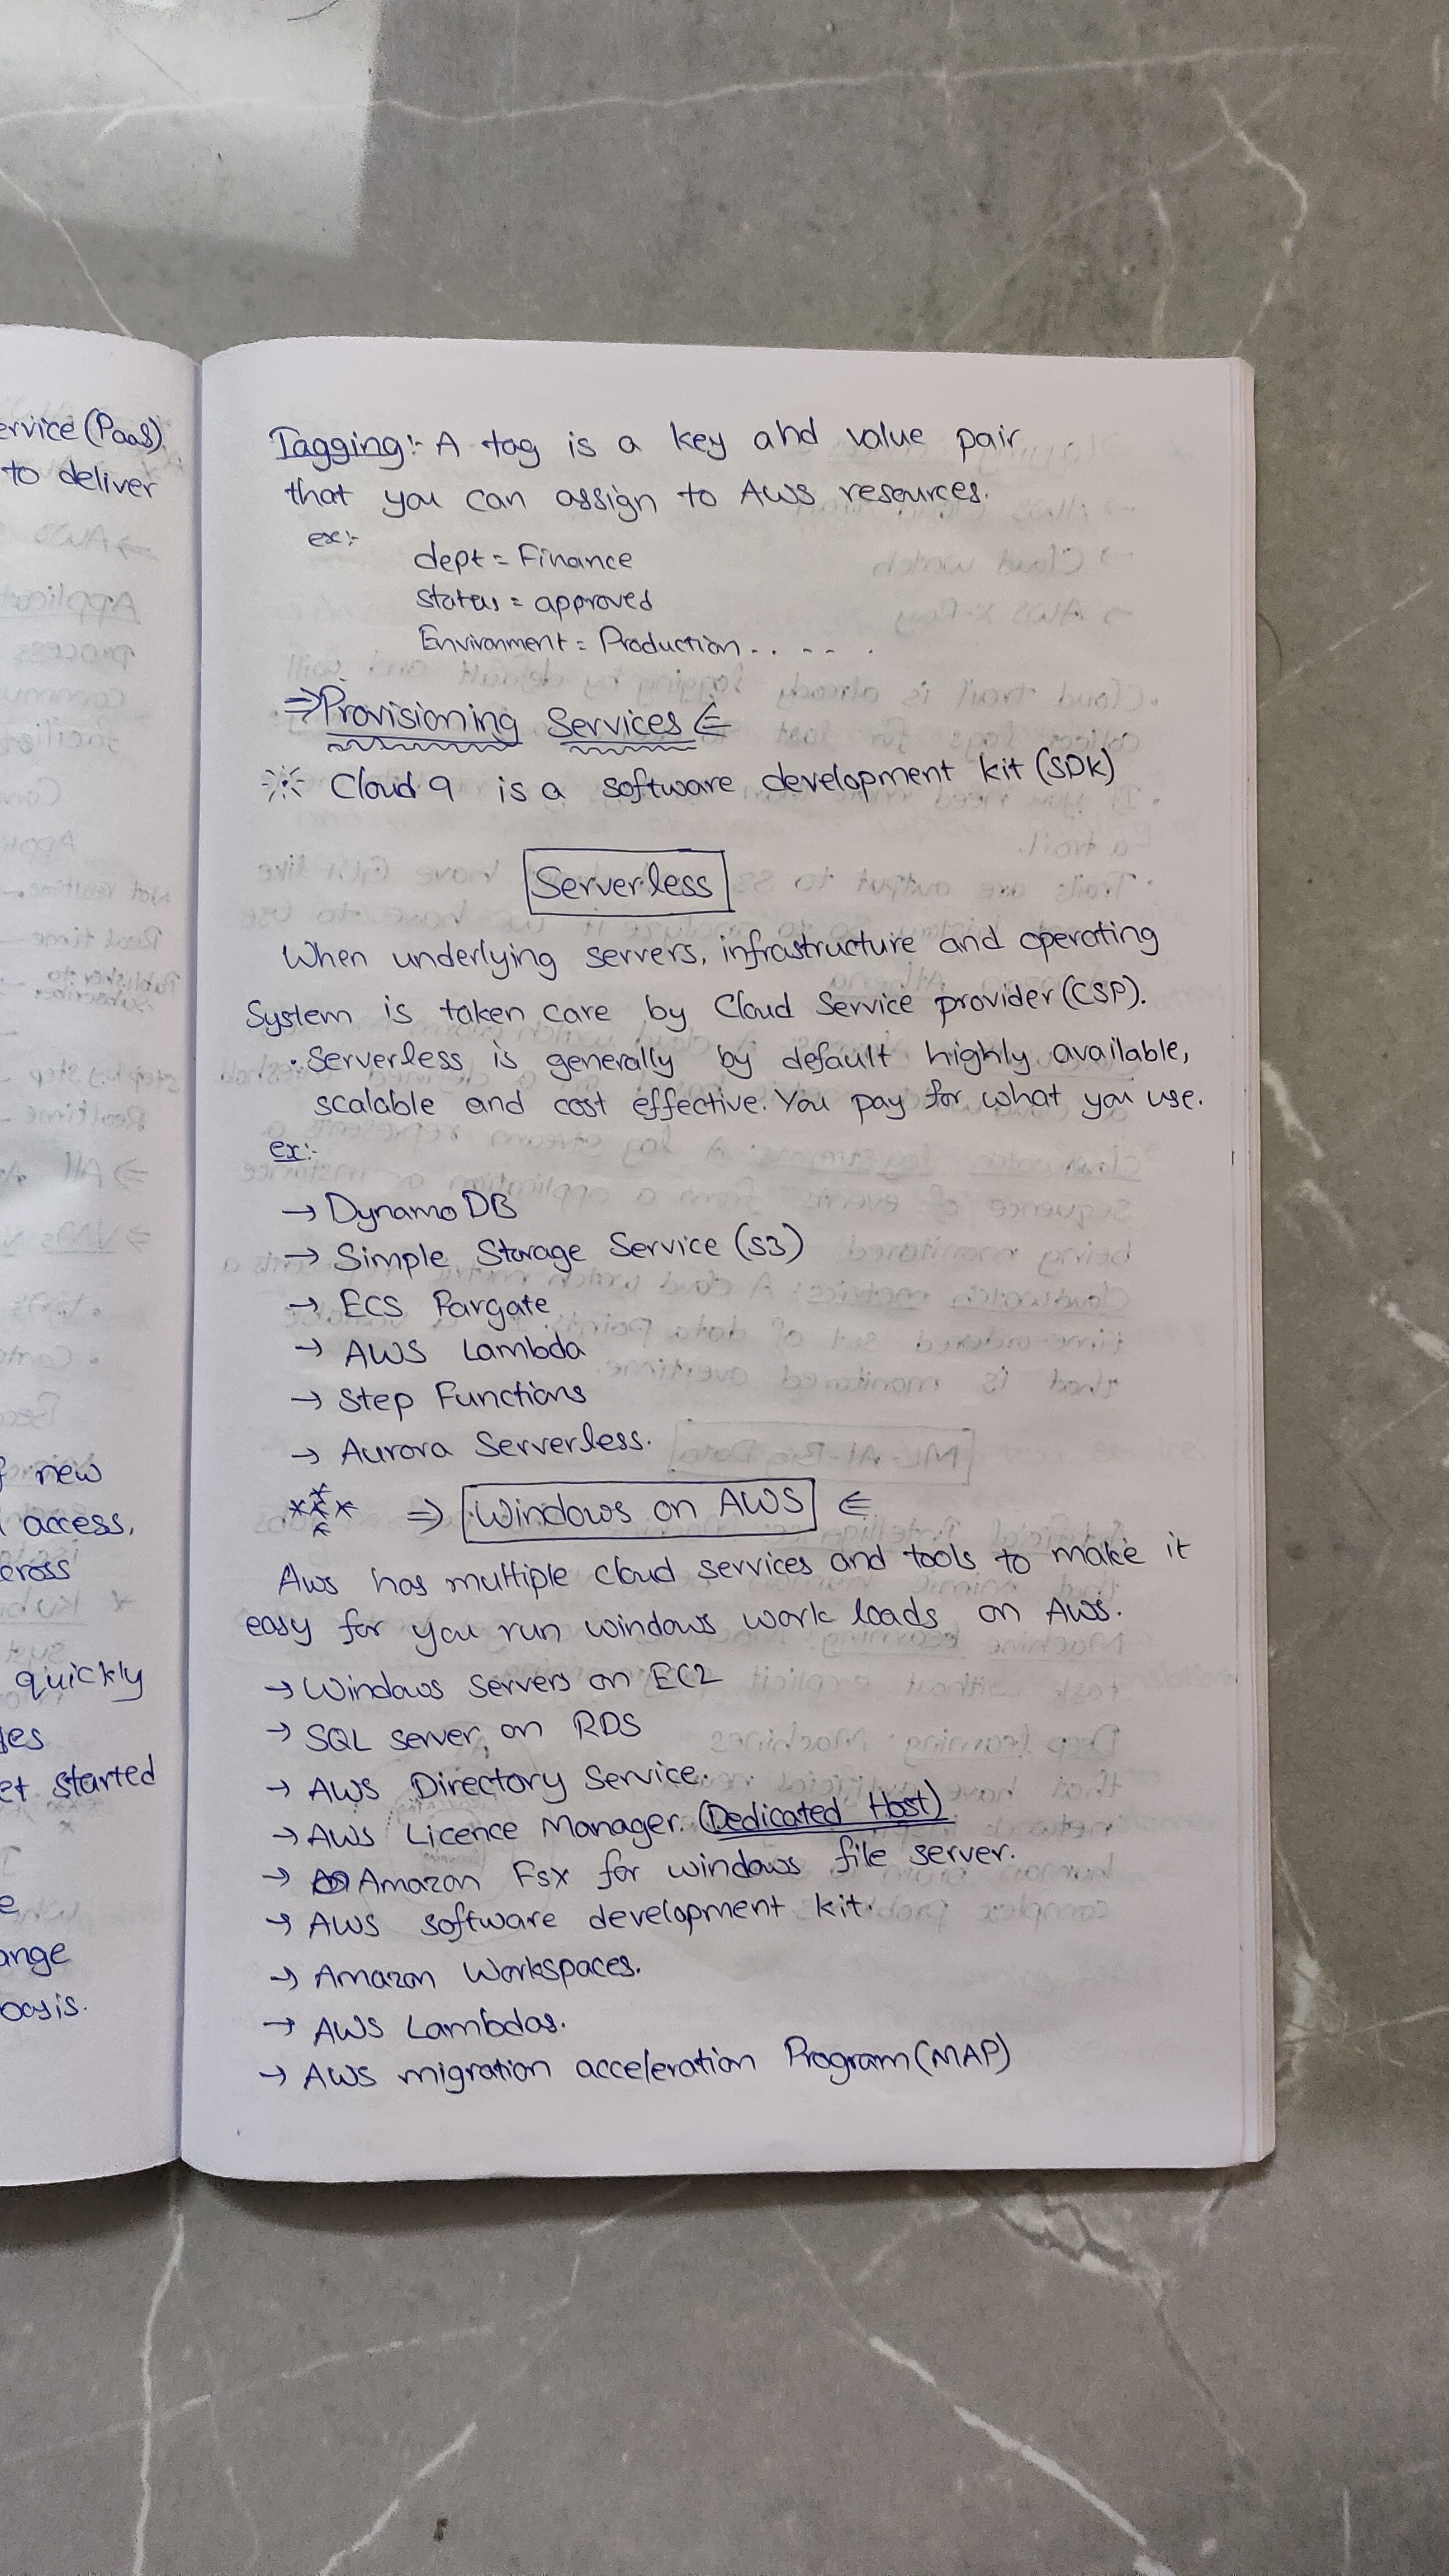 ervice (PaaS)
to deliver
f new
access,
cross
quickly
et started
e
ange
basis.
Tagging:- A tag is a key and value pair
that you can assign to AWS resources.
ex:-
dept = Finance
status = approved
Environment = Production.. -- .
⇒Provisioning Services⇐
Cloud 9 is a software development kit (SDK)
Serverless
When underlying servers, infrastructure and operating
System is taken care by Cloud Service provider (CSP).
. Serverless is generally by default highly available,
scalable and cost effective. You pay for what you use.
ex:-
→ Dynamo DB
→ Simple Storage Service (S3)
→ ECS Fargate
→ AWS Lambda
→ Step Functions
→ Aurora Serverless.
*** ⇒ Windows on AWS ⇐
Aws has multiple cloud services and tools to make it
easy for you run windows work loads on AWS.
→ Windows Servers on EC2
→ SQL server, on RDS
→ AWS Directory Service.
→ AWS Licence Manager. (Dedicated Host)
→ Amazon Fsx for windows file server.
→ AWS software development kit.
→ Amazon Workspaces.
→ AWS Lambdas.
→ AWS migration acceleration Program (MAP)